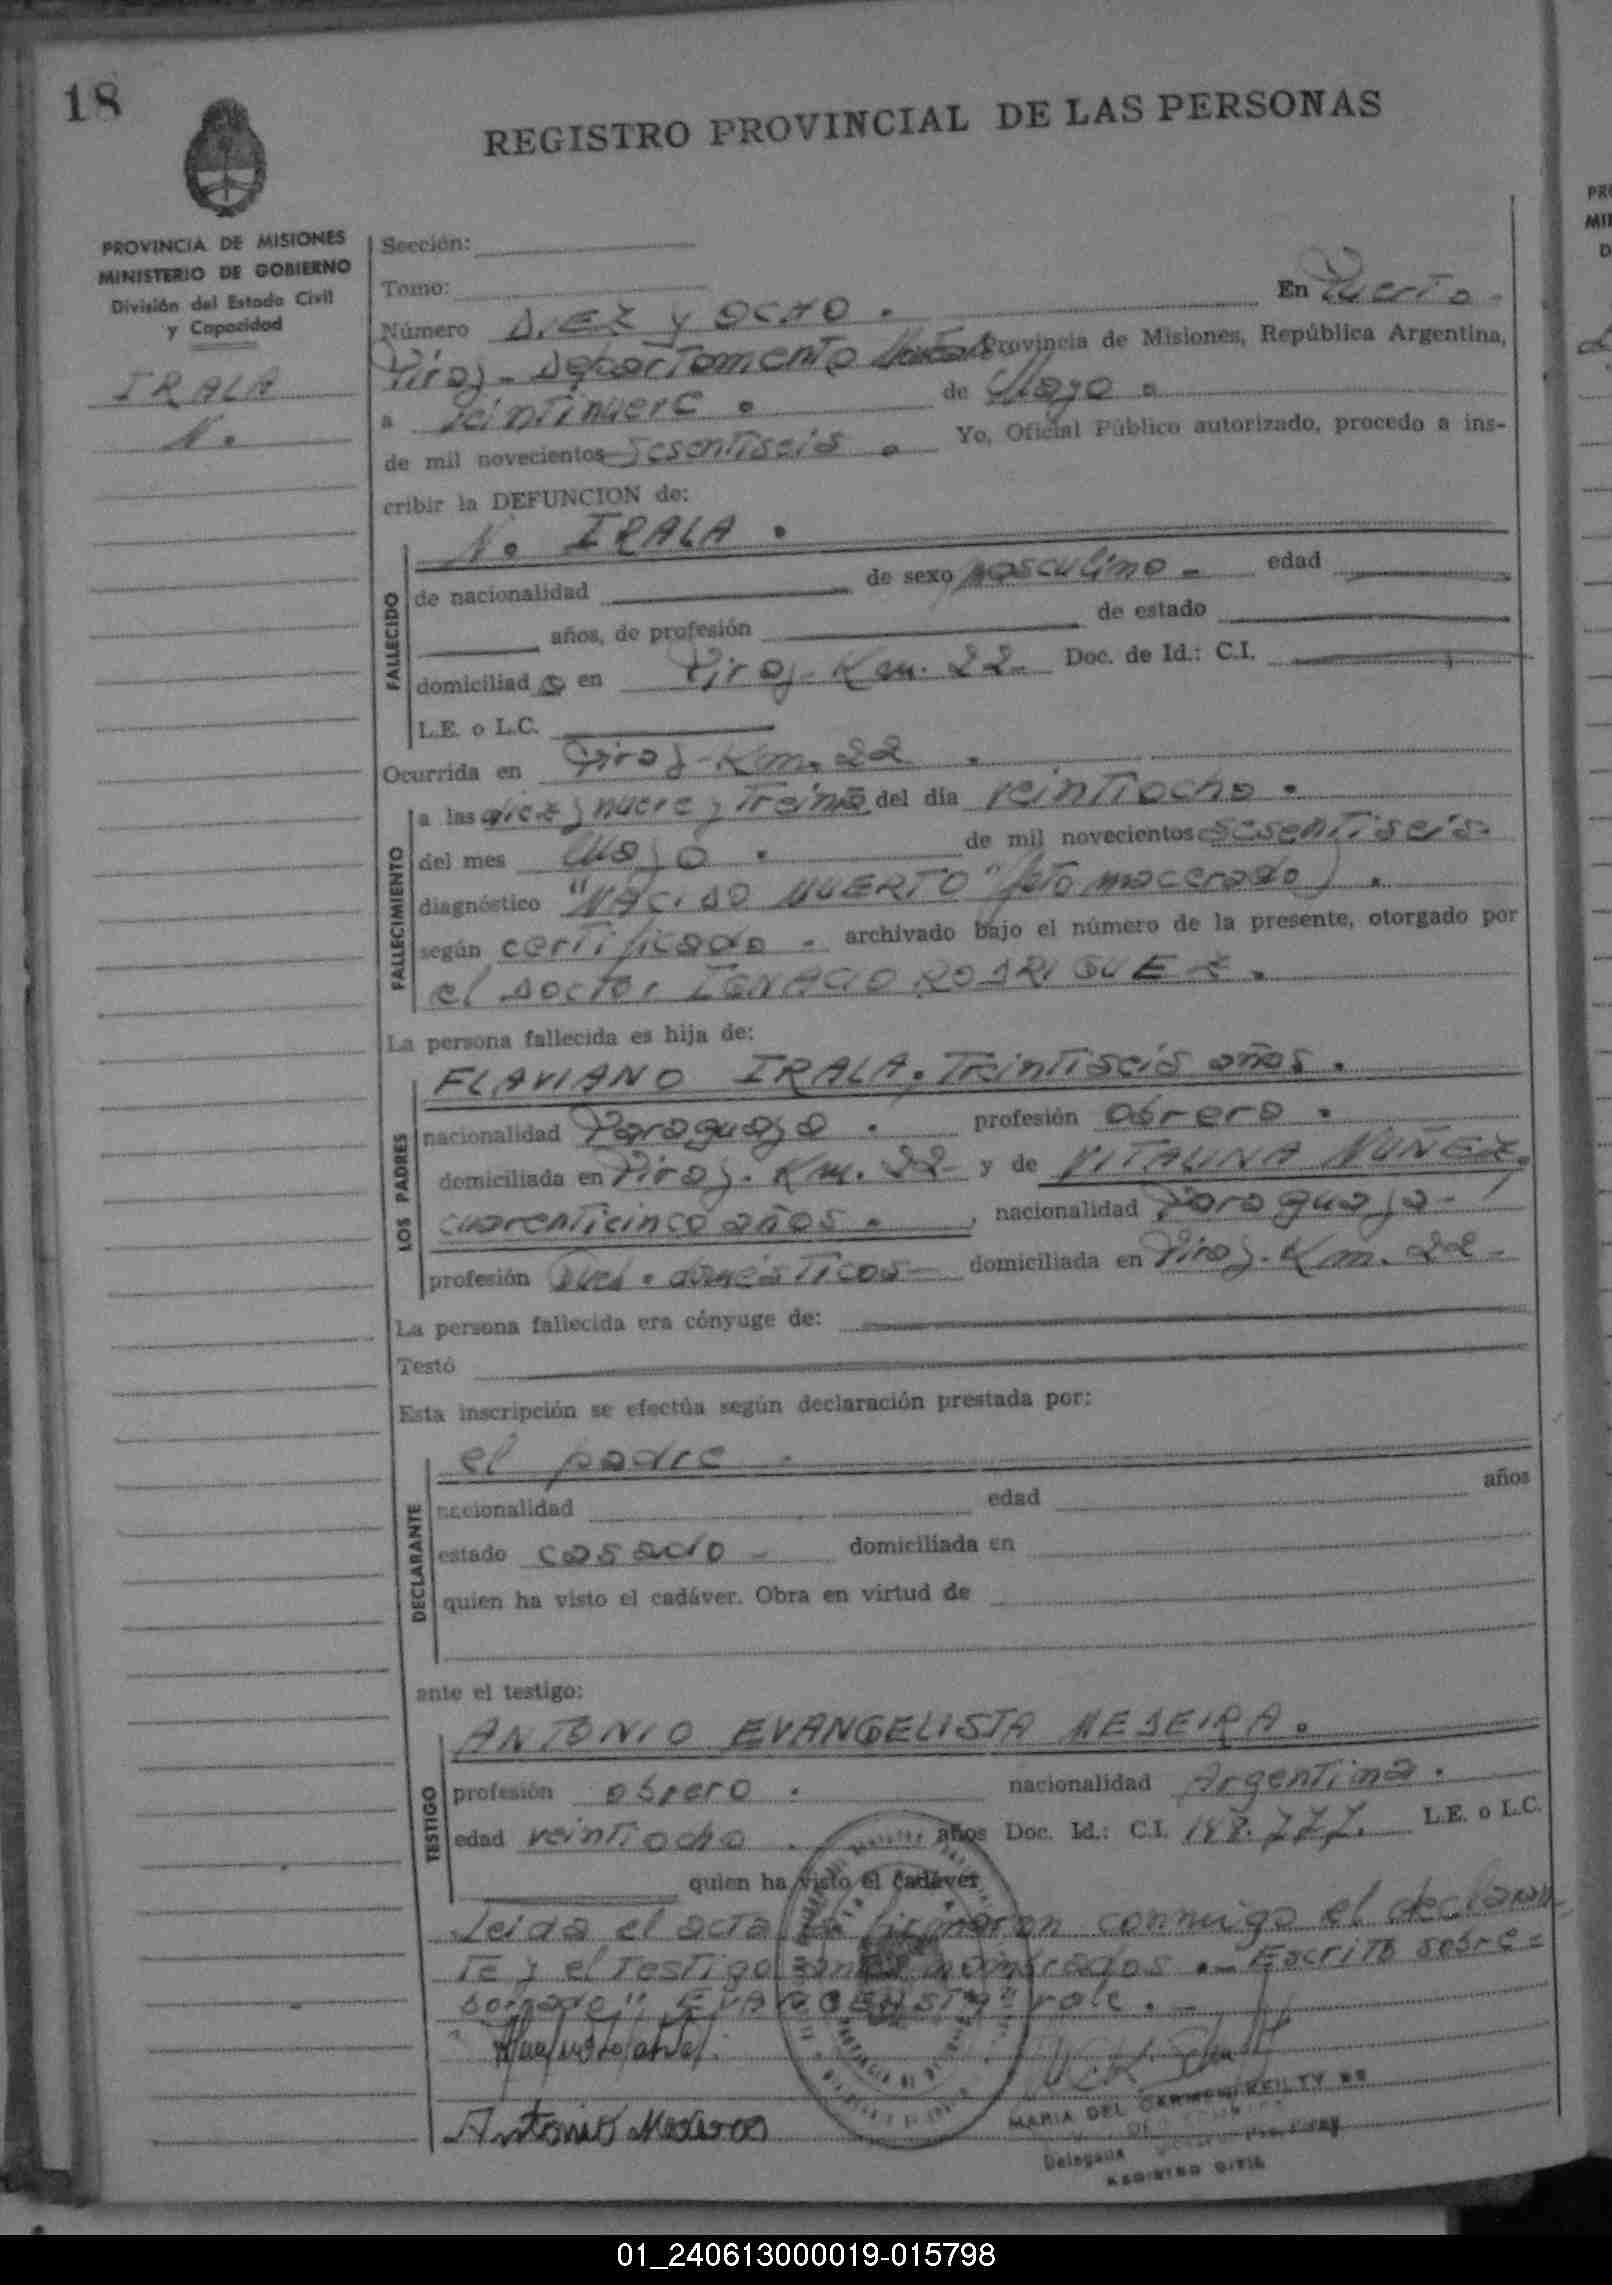 18
REGISTRO PROVINCIAL DE LAS PERSONAS
PROVINCIA DE MISIONES
MINISTERIO DE GOBIERNO
División del Estado Civil
y Capacidad
IRALA
N.
Sección:
Tomo:
Número Diez y ocho . En Puerto -
Piray - Departamento Provincia de Misiones, República Argentina,
a veintinueve . de Mayo .
de mil novecientos sesentiseis . Yo, Oficial Público autorizado, procedo a ins-
cribir la DEFUNCION de:
N. IRALA .
FALLECIDO
de nacionalidad de sexo masculino - edad
años, de profesión de estado
domiciliad o en Piray - Km. 22 - Doc. de Id.: C.I.
L.E. o L.C.
Ocurrida en Piray - Km. 22 .
FALLECIMIENTO
a las diez y nueve y treinta del día veintiocho .
del mes Mayo . de mil novecientos sesentiseis -
diagnóstico "NACIDO MUERTO" (feto macerado) .
según certificado - archivado bajo el número de la presente, otorgado por
el Doctor IGNACIO RODRIGUEZ .
La persona fallecida es hija de:
LOS PADRES
FLAVIANO IRALA, Treintiseis años .
nacionalidad Paraguaya . profesión obrero .
domiciliada en Piray - Km. 22 - y de VITALINA NUÑEZ,
cuarenticinco años . , nacionalidad Paraguaya -
profesión Queh. domésticos - domiciliada en Piray - Km. 22 -
La persona fallecida era cónyuge de:
Testó
Esta inscripción se efectúa según declaración prestada por:
DECLARANTE
el padre .
nacionalidad edad años
estado casado - domiciliada en
quien ha visto el cadáver. Obra en virtud de
ante el testigo:
TESTIGO
ANTONIO EVANGELISTA MEDEIRA .
profesión obrero . nacionalidad Argentina .
edad veintiocho . años Doc. Id.: C.I. 148.777. L.E. o L.C.
quien ha visto el cadáver
Leida el acta la firmaron conmigo el declaran-
te y el testigo antes nombrados .- Escrito sobre-
borrado: "EVANGELISTA" vale . -
Antonio Mederos
MARIA DEL CARMEN REILTY DE
Delegada
REGISTRO CIVIL
PROVINCIA DE MISIONES
01_240613000019-015798